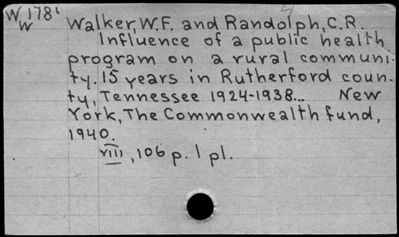 W 178¹ Walker, W.F. and Randolph, C.R.
W
Influence of a public health
program on a rural communi-
ty. 15 years in Rutherford coun-
ty, Tennessee 1924-1938... New
York, The Commonwealth fund,
1940.
viii, 106 p. 1 pl.